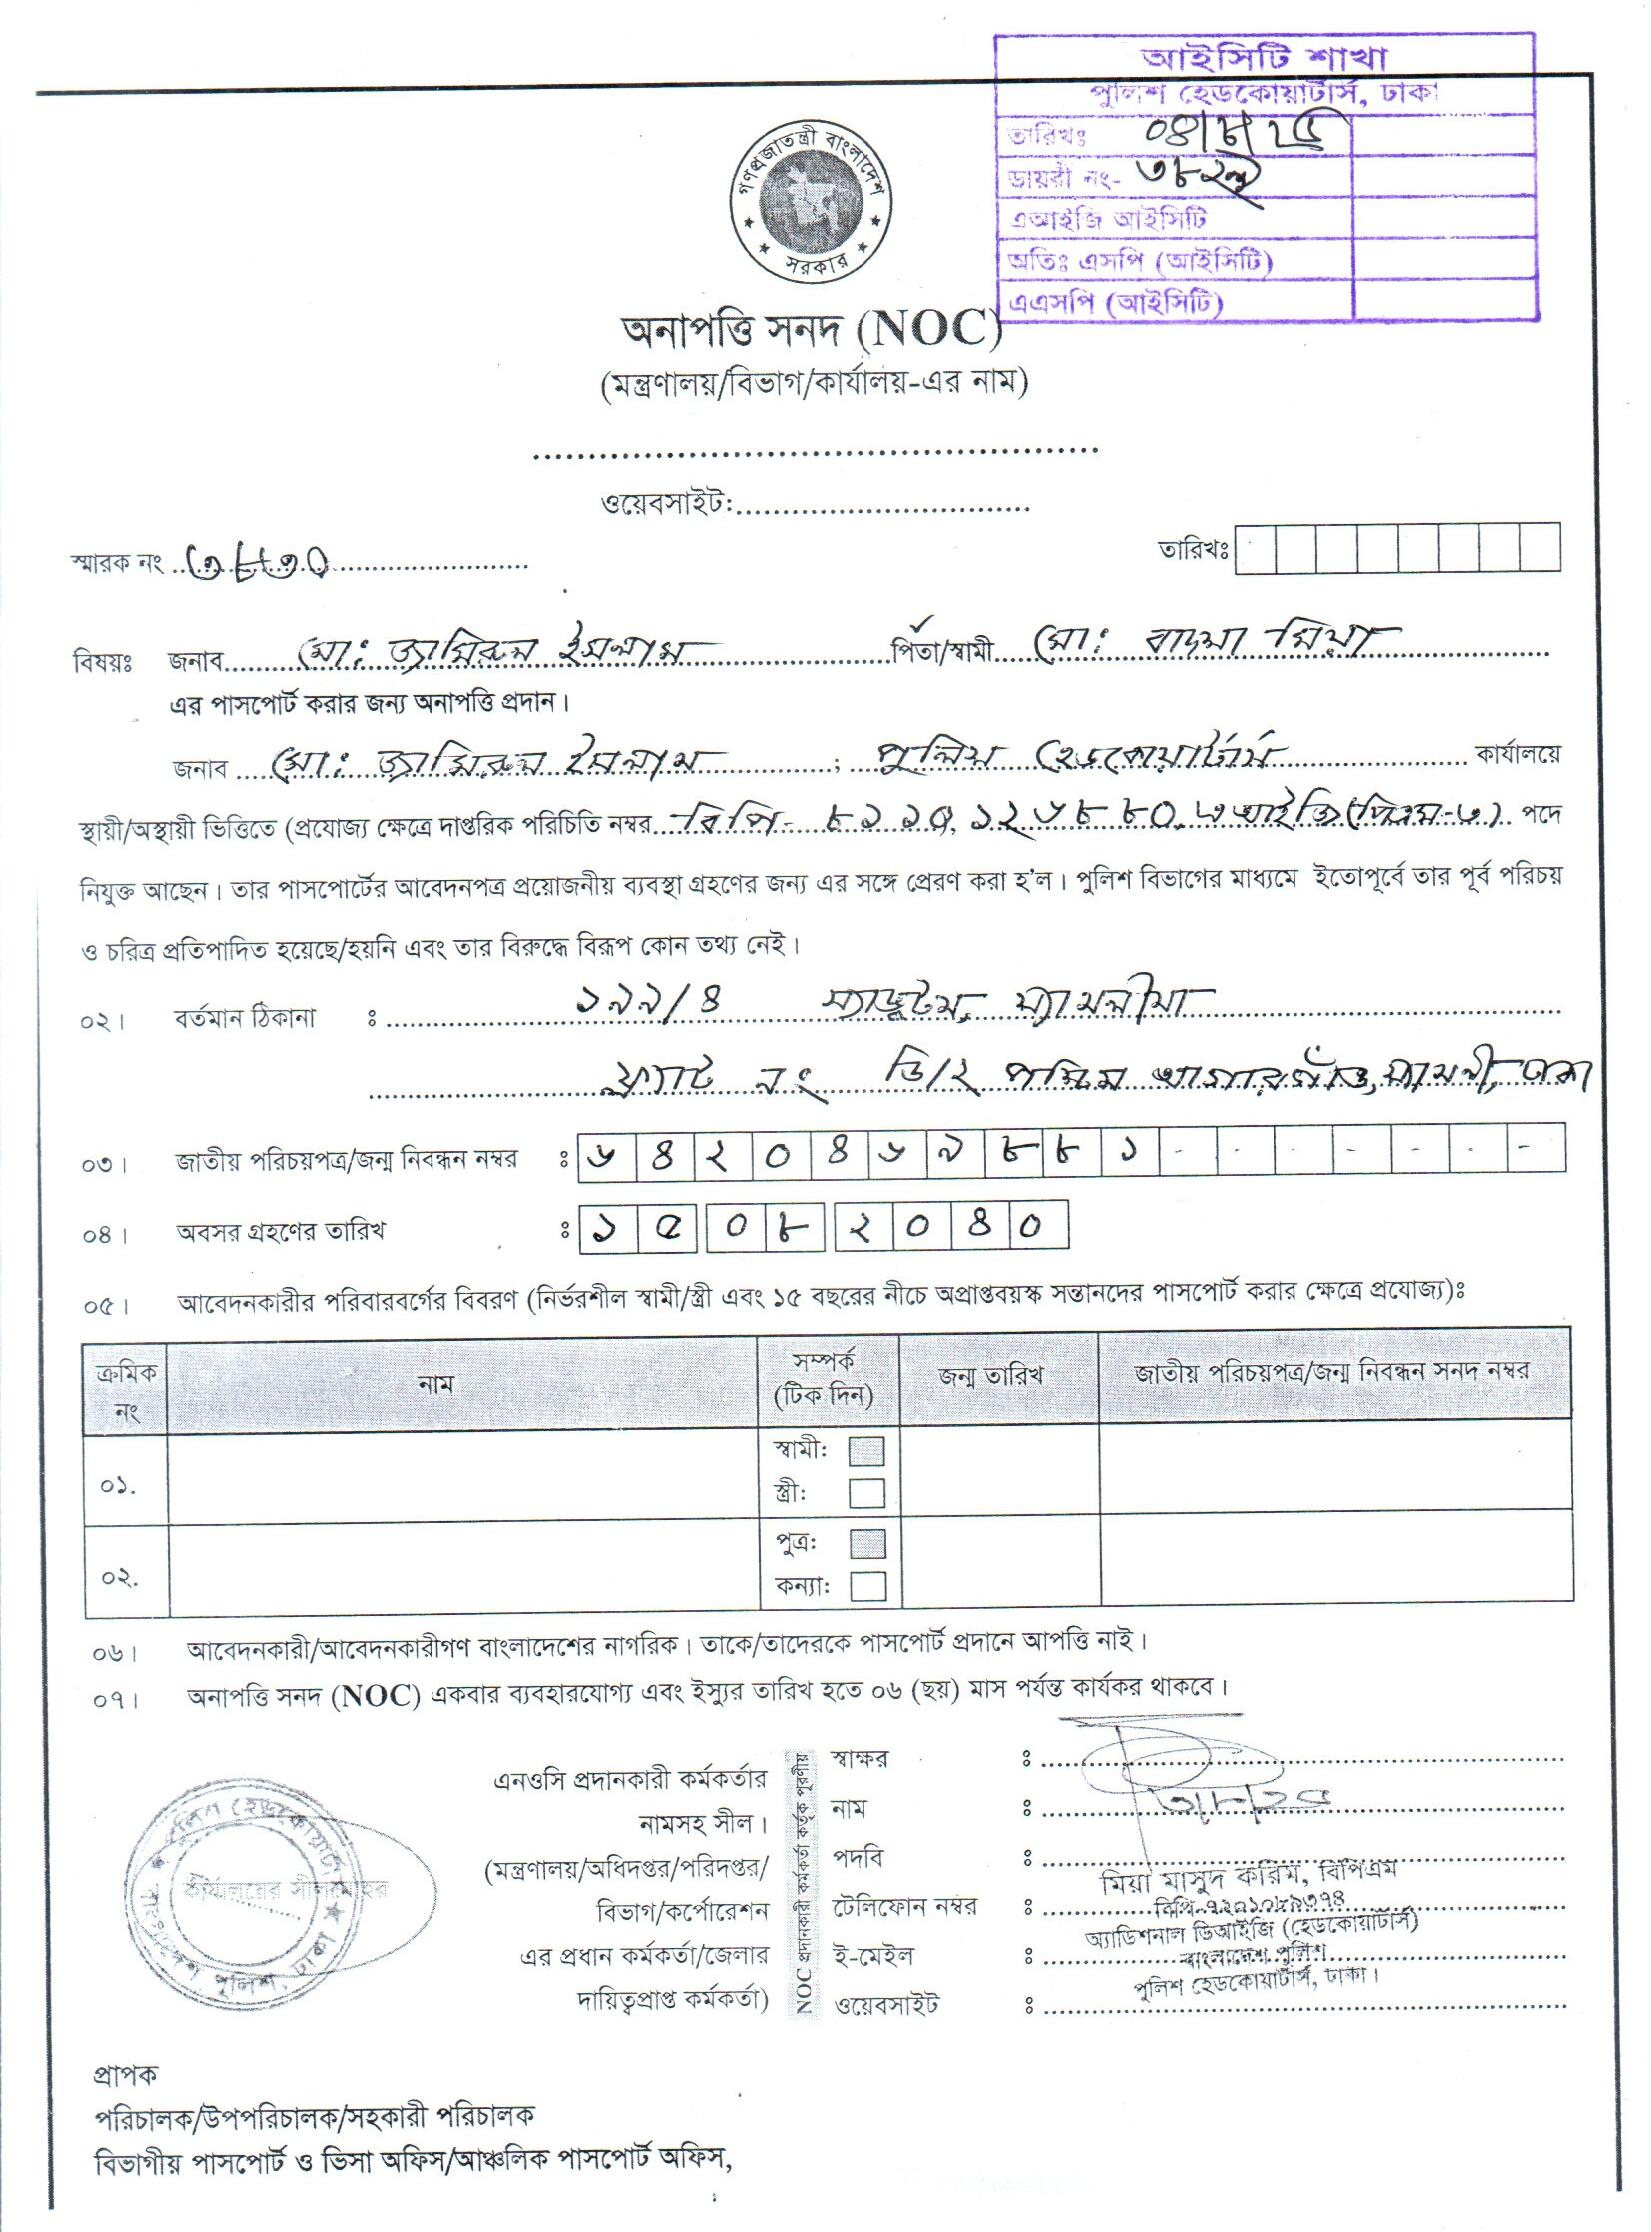 আইসিটি শাখা
পুলিশ হেডকোয়ার্টার্স, ঢাকা
তারিখঃ ০৪/৮/২৫
ডায়রী নং- ৩৮২
এআইজি আইসিটি
অতিঃ এসপি (আইসিটি)
এএসপি (আইসিটি)
গণপ্রজাতন্ত্রী বাংলাদেশ
সরকার
অনাপত্তি সনদ (NOC)
(মন্ত্রণালয়/বিভাগ/কার্যালয়-এর নাম)
ওয়েবসাইট:
স্মারক নং ৩৮৩০ তারিখঃ
বিষয়ঃ জনাব মো: আমিরুল ইসলাম পিতা/স্বামী মো: বাদশা মিয়া
এর পাসপোর্ট করার জন্য অনাপত্তি প্রদান।
জনাব মো: আমিরুল ইসলাম ; পুলিশ হেডকোয়ার্টার্স কার্যালয়ে
স্থায়ী/অস্থায়ী ভিত্তিতে (প্রযোজ্য ক্ষেত্রে দাপ্তরিক পরিচিতি নম্বর বিপি- ৮১১০১২৬৮৮০, এআইজি (পিএম-১) পদে
নিযুক্ত আছেন। তার পাসপোর্টের আবেদনপত্র প্রয়োজনীয় ব্যবস্থা গ্রহণের জন্য এর সঙ্গে প্রেরণ করা হ'ল। পুলিশ বিভাগের মাধ্যমে ইতোপূর্বে তার পূর্ব পরিচয়
ও চরিত্র প্রতিপাদিত হয়েছে/হয়নি এবং তার বিরুদ্ধে বিরূপ কোন তথ্য নেই।
০২। বর্তমান ঠিকানা ঃ ১৯৯/৪
ফ্ল্যাট নং ডি/২ পশ্চিম আগারগাঁও, শ্যামলী, ঢাকা
০৩। জাতীয় পরিচয়পত্র/জন্ম নিবন্ধন নম্বর ঃ ৬ ৪ ২ ০ ৪ ৬ ৯ ৮ ৮ ১ - - - - - - -
০৪। অবসর গ্রহণের তারিখ ঃ ১ ৫ ০ ৮ ২ ০ ৪ ০
০৫। আবেদনকারীর পরিবারবর্গের বিবরণ (নির্ভরশীল স্বামী/স্ত্রী এবং ১৫ বছরের নীচে অপ্রাপ্তবয়স্ক সন্তানদের পাসপোর্ট করার ক্ষেত্রে প্রযোজ্য)ঃ
ক্রমিক নং নাম সম্পর্ক (টিক দিন) জন্ম তারিখ জাতীয় পরিচয়পত্র/জন্ম নিবন্ধন সনদ নম্বর
০১. স্বামী:
স্ত্রী:
০২. পুত্র:
কন্যা:
০৬। আবেদনকারী/আবেদনকারীগণ বাংলাদেশের নাগরিক। তাকে/তাদেরকে পাসপোর্ট প্রদানে আপত্তি নাই।
০৭। অনাপত্তি সনদ (NOC) একবার ব্যবহারযোগ্য এবং ইস্যুর তারিখ হতে ০৬ (ছয়) মাস পর্যন্ত কার্যকর থাকবে।
পুলিশ হেডকোয়ার্টার্স ঢাকা
বাংলাদেশ পুলিশ
কার্যালয়ের সীলমোহর
এনওসি প্রদানকারী কর্মকর্তার
নামসহ সীল।
(মন্ত্রণালয়/অধিদপ্তর/পরিদপ্তর/
বিভাগ/কর্পোরেশন
এর প্রধান কর্মকর্তা/জেলার
দায়িত্বপ্রাপ্ত কর্মকর্তা)
NOC প্রদানকারী কর্মকর্তা কর্তৃক পূরণীয়
স্বাক্ষর ঃ
নাম ঃ
পদবি ঃ
টেলিফোন নম্বর ঃ
ই-মেইল ঃ
ওয়েবসাইট ঃ
মিয়া মাসুদ করিম, বিপিএম
বিপি-৭২০১০৮৯৩৭৪
অ্যাডিশনাল ডিআইজি (হেডকোয়ার্টার্স)
বাংলাদেশ পুলিশ
পুলিশ হেডকোয়ার্টার্স, ঢাকা।
প্রাপক
পরিচালক/উপপরিচালক/সহকারী পরিচালক
বিভাগীয় পাসপোর্ট ও ভিসা অফিস/আঞ্চলিক পাসপোর্ট অফিস,